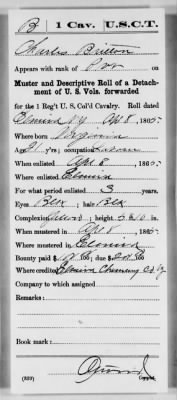 B | 1 Cav. | U.S.C.T.
Charles Britton
Appears with rank of Pvt on
Muster and Descriptive Roll of a Detach-
ment of U. S. Vols. forwarded
for the 1 Reg't U. S. Col'd Cavalry. Roll dated
Elmira NY Apl 8, 1865.
Where born Virginia
Age 21 y'rs; occupation
When enlisted Apl 8, 1865.
Where enlisted Elmira
For what period enlisted 3 years.
Eyes Blk; hair Blk
Complexion; height 5 ft. 10 in.
When mustered in Apl 8, 1865.
Where mustered in Elmira
Bounty paid $; due $
Where credited Elmira Chemung Co NY
Company to which assigned
Remarks:
Book mark:
(339)
Copyist.